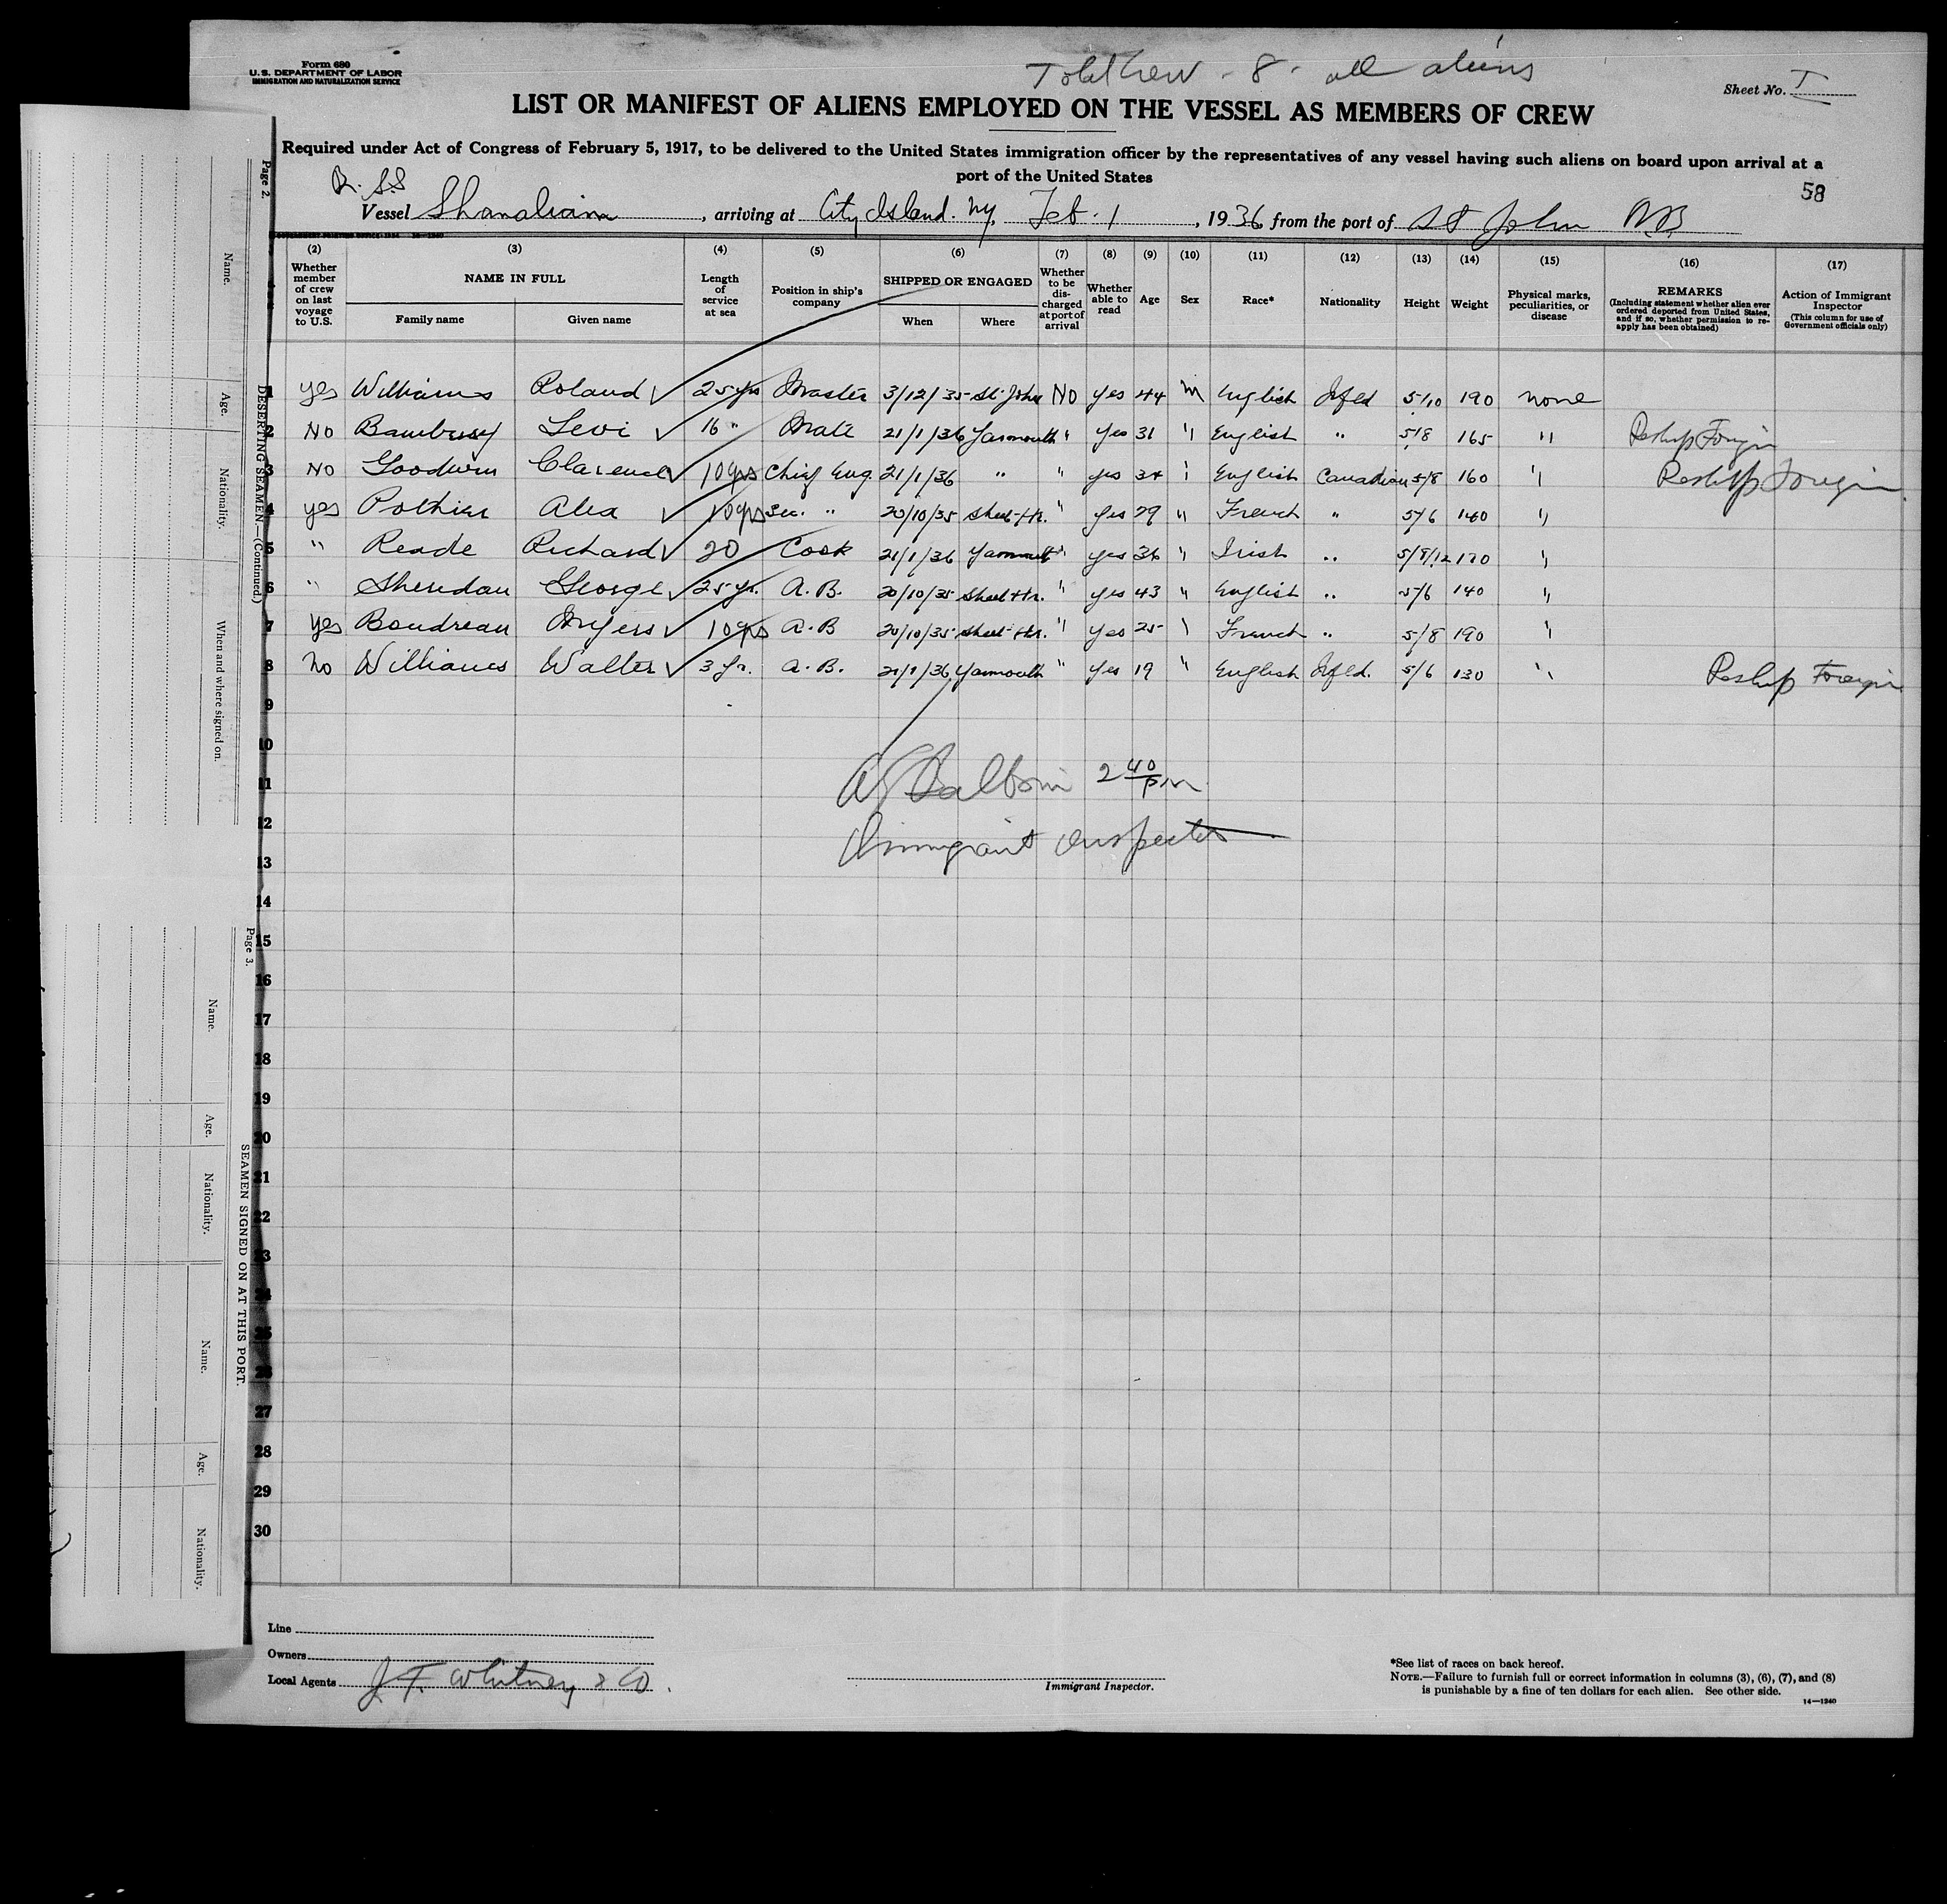 Form 680
U.S. DEPARTMENT OF LABOR
IMMIGRATION AND NATURALIZATION SERVICE
Total Crew - 8 - all aliens
Sheet No. I
LIST OR MANIFEST OF ALIENS EMPLOYED ON THE VESSEL AS MEMBERS OF CREW
Required under Act of Congress of February 5, 1917, to be delivered to the United States immigration officer by the representatives of any vessel having such aliens on board upon arrival at a
port of the United States
58
Vessel Shanalian, arriving at City Island. NY, Feb. 1, 1936, from the port of St John N.B.
(2) (3) (4) (5) (6) (7) (8) (9) (10) (11) (12) (13) (14) (15) (16) (17)
Whether member of crew on last voyage to U.S.
NAME IN FULL
Family name
Given name
Length of service at sea
Position in ship's company
SHIPPED OR ENGAGED
When
Where
Whether to be discharged at port of arrival
Whether able to read
Age
Sex
Race*
Nationality
Height
Weight
Physical marks, peculiarities, or disease
REMARKS
(Including statement whether alien ever ordered deported from United States, and if so, whether permission to re-apply has been obtained)
Action of Immigrant Inspector
(This column for use of Government officials only)
1 yes Williams Roland 25 yrs Master 3/12/35 St. John No yes 44 M English Nfld 5/10 190 none
2 No Levi 16 " Mate 21/1/36 Yarmouth " Yes 31 " English " 5/8 165 " Reship Foreign
3 No Goodwin Clarence 10 yrs Chief Eng. 21/1/36 " " yes 34 " English Canadian 5/8 160 " Reship Foreign
4 yes Pothier 10 yrs Sec. " 20/10/35 Sheet Hr. " Yes 29 " French " 5/6 140 "
5 " Reade Richard 20 Cook 21/1/36 Yarmouth " yes 36 " Irish " "
6 " Sheridan George 25 yr. A.B. 20/10/35 Sheet Hr. " yes 43 " English " 5/6 140 "
7 Yes Boudreau 10 yrs A.B 20/10/35 Sheet Hr. " yes 25 " French " 5/8 190 "
8 No Williams Walter 3 yr. A.B. 21/1/36 Yarmouth " Yes 19 " English Nfld. 5/6 130 " Reship Foreign
9
10
11
12
13
14
15
16
17
18
19
20
21
22
23
24
25
26
27
28
29
30
2 40 pm
Immigrant Inspector
Line
Owners
Local Agents J. T. Whitney & Co.
Immigrant Inspector.
*See list of races on back hereof.
NOTE.—Failure to furnish full or correct information in columns (3), (6), (7), and (8)
is punishable by a fine of ten dollars for each alien. See other side.
14—1240
Page 2.
DESERTING SEAMEN—(Continued.)
Name.
Age.
Nationality.
When and where signed on.
Page 3.
SEAMEN SIGNED ON AT THIS PORT.
Name.
Age.
Nationality.
Name.
Age.
Nationality.